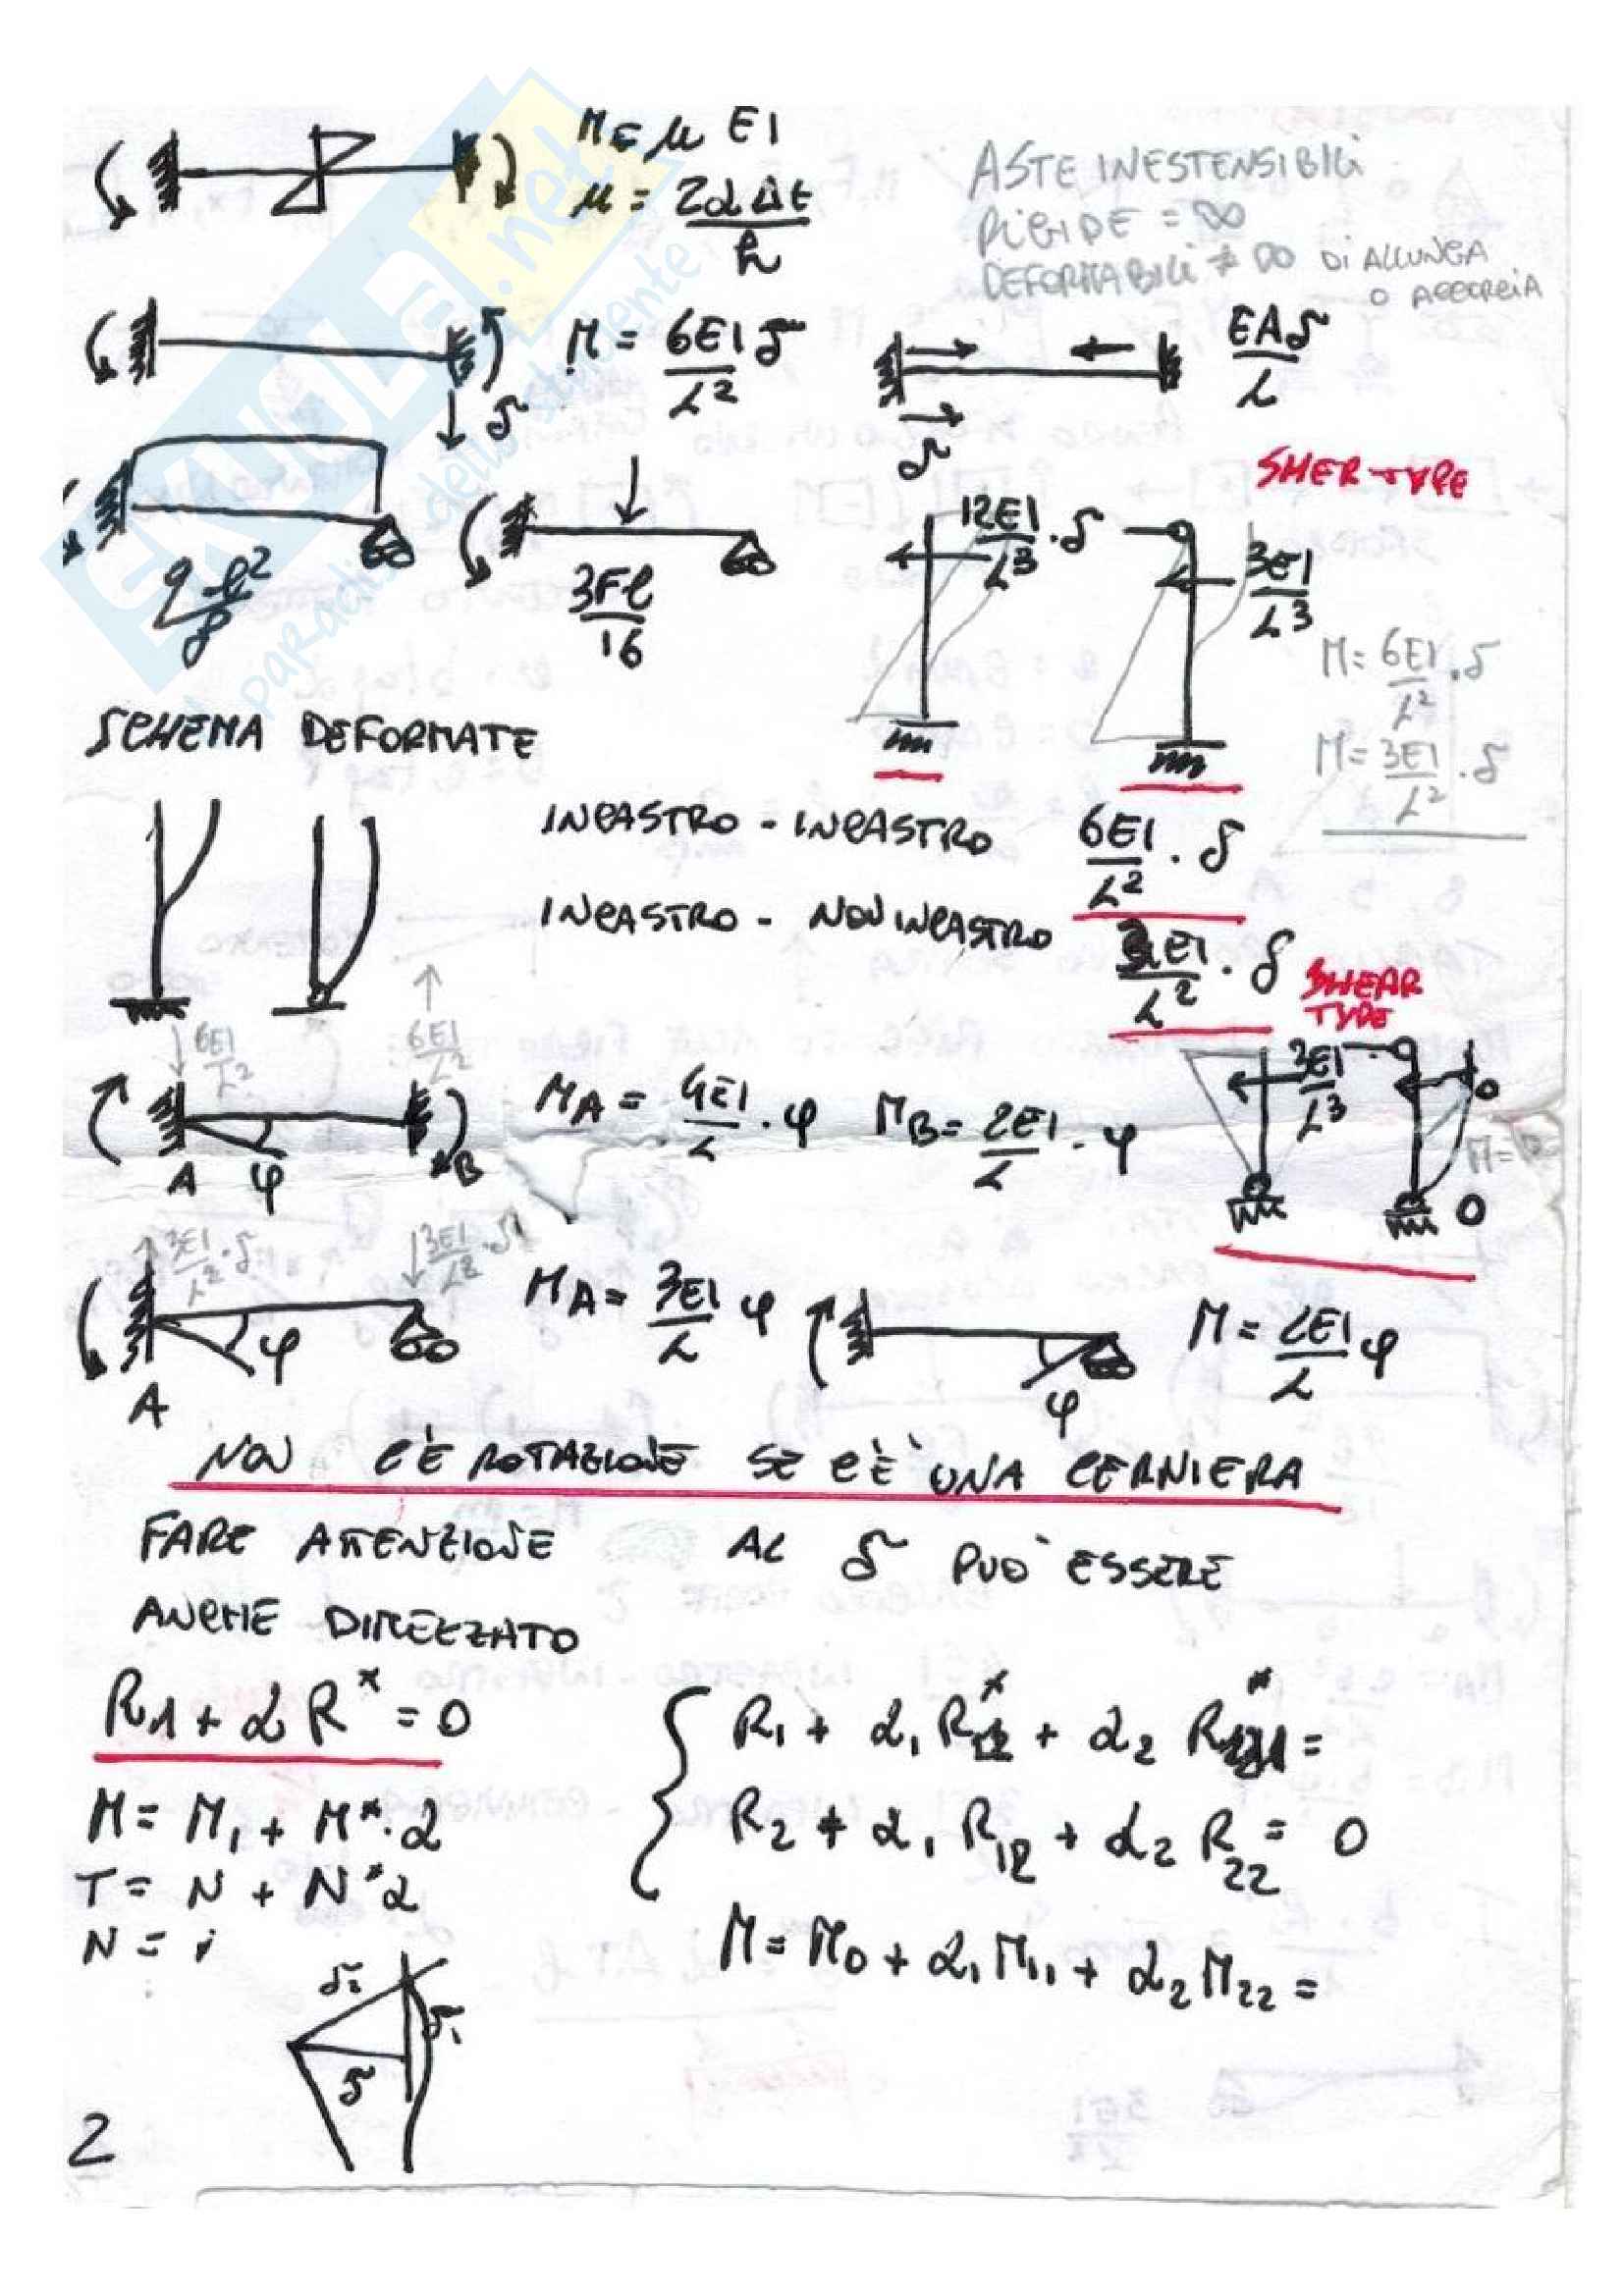 M = μ EI
μ = 2αΔt / h
ASTE INESTENSIBILI
RIGIDE = ∞
DEFORMABILI ≠ ∞ DI ALLUNGA
O ACCORCIA
M = 6EI/L² δ
δ
EAδ/L
δ
SHER TYPE
q l²/8
3Fl/16
12EI/L³ · δ
3EI/L³
M = 6EI/L² · δ
M = 3EI/L² · δ
SCHEMA DEFORMATE
INCASTRO - INCASTRO 6EI/L² · δ
INCASTRO - NON INCASTRO 3EI/L² · δ
SHEAR TYPE
6EI/L² 6EI/L²
A φ B
MA = 4EI/L · φ MB = 2EI/L · φ
3EI/L³
0
M =
0
3EI/L² · δ 3EI/L² · δ
A φ
MA = 3EI/L φ
φ
M = 2EI/L φ
NON C'È ROTAZIONE SE C'È UNA CERNIERA
FARE ATTENZIONE AL δ PUÒ ESSERE
ANCHE DIREZZATO
R1 + α R* = 0
M = M1 + M* · α
T = N + N* α
N = "
R1 + α1 R* + α2 R* =
R2 + α1 R12 + α2 R22 = 0
M = M0 + α1 M11 + α2 M22 =
δ2
δ1
δ
2
SKUOLA.net
il paradiso dello studente